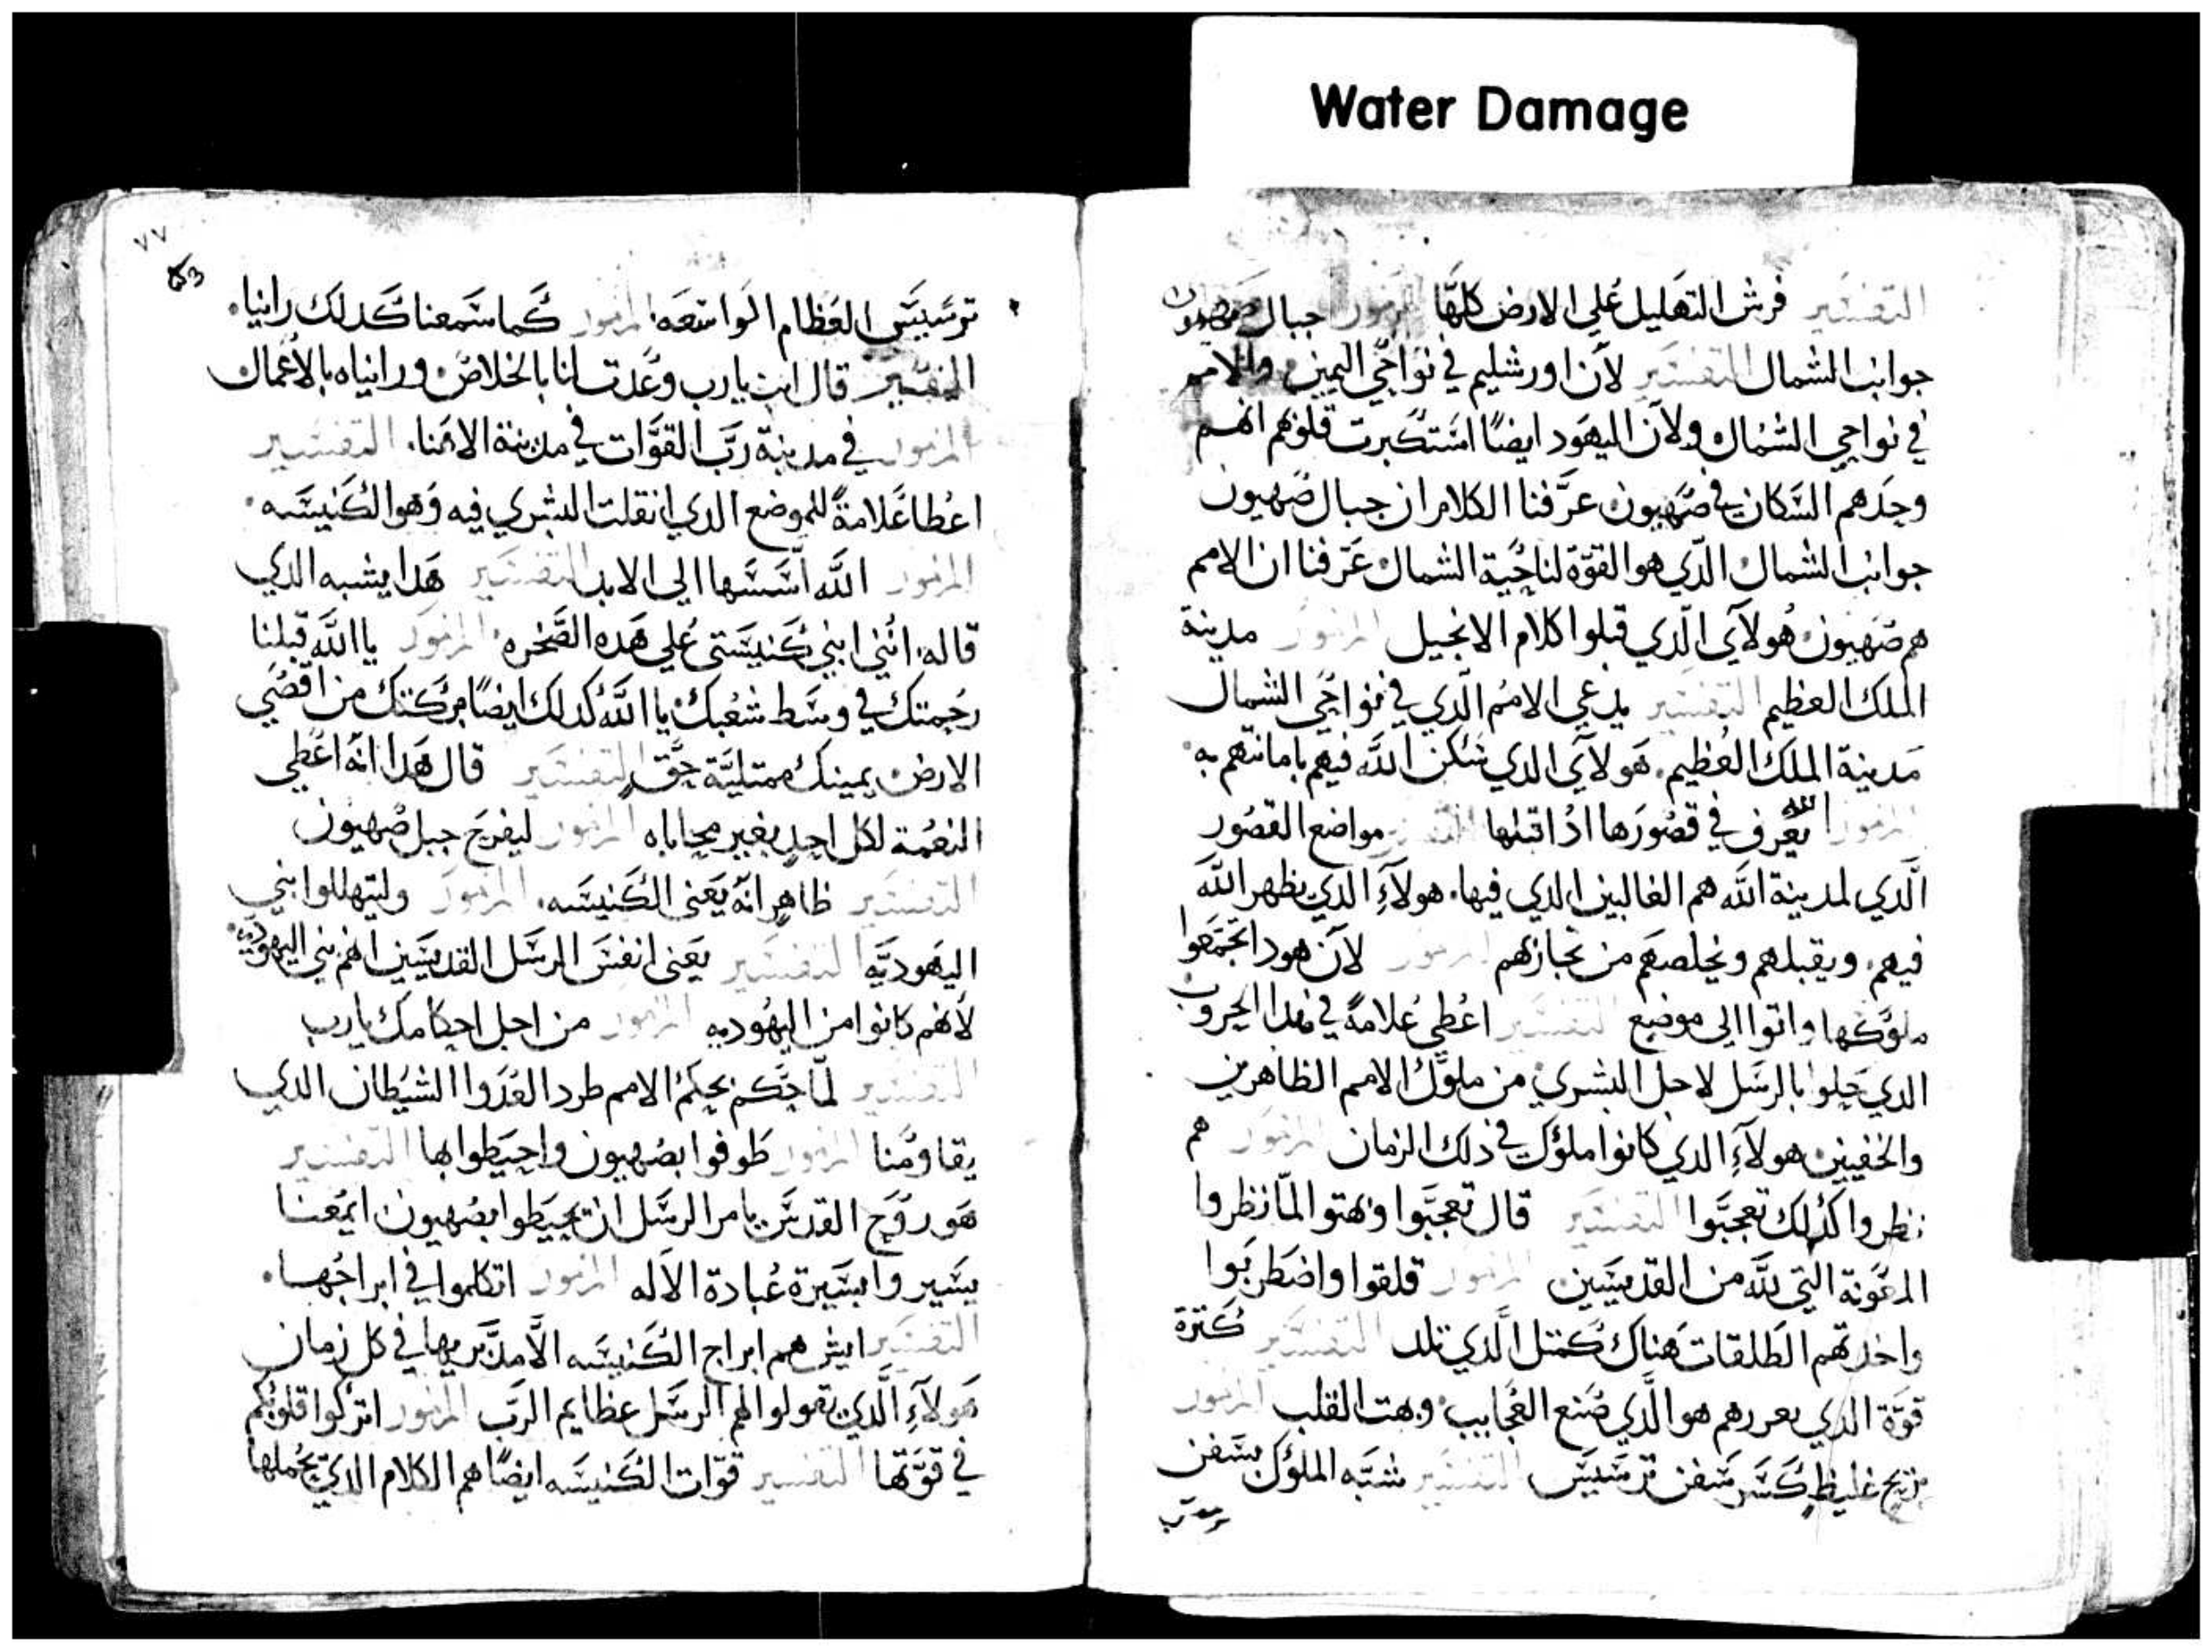 Water Damage
التفسير فرش التهليل علي الارض كلها المزمور جبال صهيون
جوانب الشمال التفسير لأن اورشليم في نواحي اليمين والامم
في نواحي الشمال ولأن اليهود ايضًا استكبرت قلوبهم انهم
وحدهم السكان في صهيون عرّفنا الكلام ان جبال صهيون
جوانب الشمال الدي هو القوة لناحية الشمال عرّفنا ان الامم
هم صهيون هولآي الدي قبلوا كلام الانجيل المزمور مدينة
الملك العظيم التفسير يدعي الامم الدي في نواحي الشمال
مدينة الملك العظيم هولآي الدي سكن الله فيهم بامانتهم به
المزمور الله يعرف في قصورها ادا قبلها التفسير مواضع القصور
الدي لمدينة الله هم الغالبين الدي فيها هولآءِ الدي يظهر الله
فيهم ويقبلهم ويخلصهم من تجاربهم المزمور لأن هودا اجتمعوا
ملوكها واتوا الي موضع التفسير اعطي علامةً في هدا الحروب
الدي بالرسل لاجل البشري من ملوك الامم الظاهرين
والخفيين هولآءِ الدي كانوا ملوك في ذلك الزمان المزمور هم
نظروا كدلك تعجبّوا التفسير قال تعجبّوا وبهتوا لمّا نظروا
المعونة التي لله من القديسين المزمور قلقوا واضطربوا
واخدتهم الطلقات هناك كمتل الدي تلد التفسير كترة
قوة الدي هو الدي صنع العجايب وبهت القلب المزمور
بريح غليظ تكسر سفن ترسيس التفسير شبّه الملوك بسفن
ترسيس العظام الواسعه المزمور كما سمعنا كدلك راينا
التفسير قال انت يا رب وعدت لنا بالخلاص وراناه بالاعمال
المزمور في مدينة ربّ القوات في مدينة الاهنا التفسير
اعطا علامةً للموضع الدي انقلت البشري فيه وهو الكنيسه
المزمور الله اسسها الي الابد التفسير هدا يشبه الدي
قاله انني ابني كنيستي علي هده الصخره المزمور يا الله قبلنا
رحمتك في وسط شعبك يا الله كدلك ايضًا بركتك من اقصي
الارض يمينك ممتليّة حق التفسير قال هدا انه اعطي
النعمة لكل احد بغير محاباه المزمور ليفرح جبل صهيون
التفسير ظاهر انه يعني الكنيسه المزمور وليتهللوا بني
اليهوديّه التفسير يعني انفس الرسل القديسين انهم بني اليهوديه
لأنهم كانوا من اليهوديه المزمور من اجل احكامك يا رب
التفسير لمّا حكم بحكم الامم طرد العدوا الشيطان الدي
يقاومنا المزمور طوفوا بصهيون واحيطوا بها التفسير
هو روح القدس يامر الرسل ان يحيطوا بصهيون ايمعنا
يسيروا بسيرة عبادة الآله المزمور اتكلموا في ابراجها
التفسير ايش هم ابراج الكنيسه الّا مدبّريها في كل زمان
هولآءِ الدي يقولوا لهم الرسل عظايم الرب المزمور اتركوا قلوبكم
في قوتها التفسير قوات الكنيسه ايضًا هم الكلام الدي يحملها